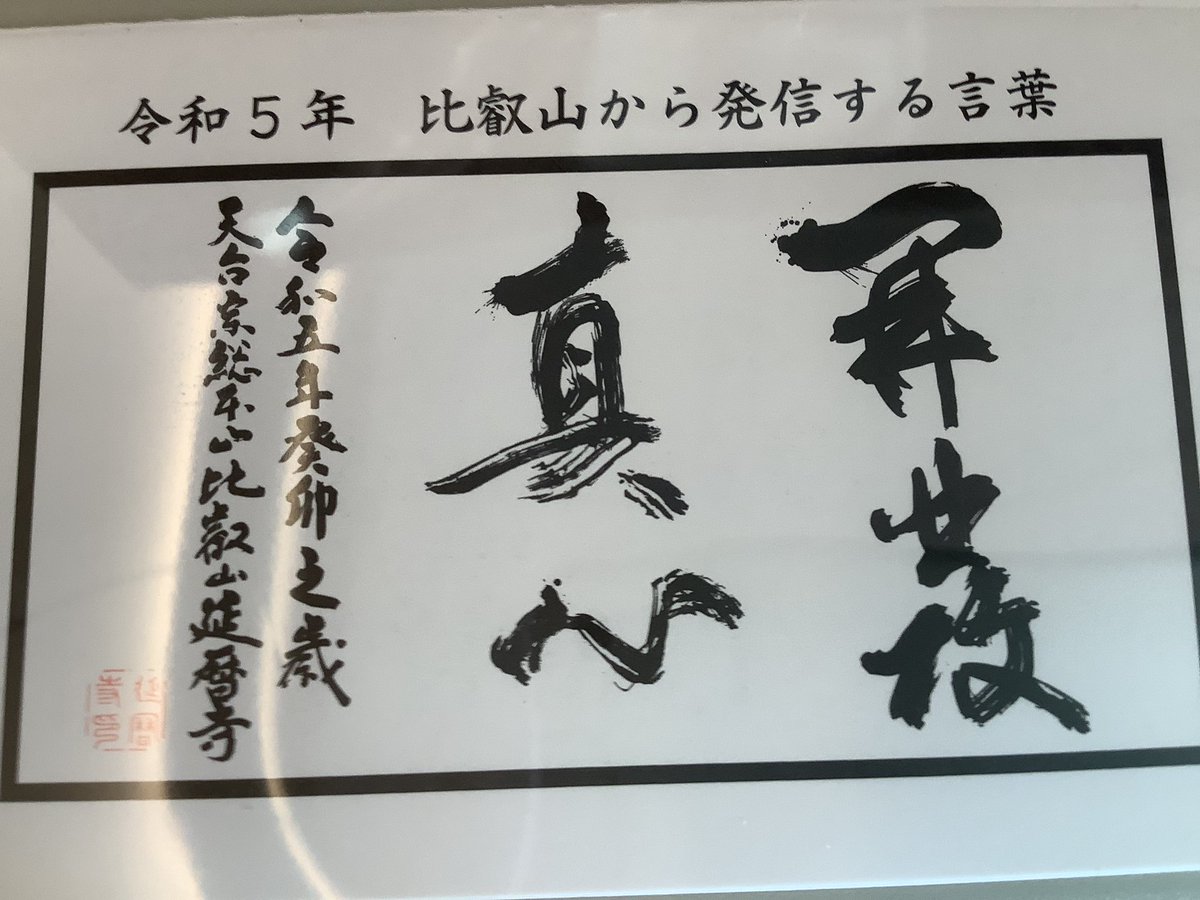 令和5年　比叡山から発信する言葉
開發
真心
令和五年癸卯之歳
天台宗総本山比叡山延暦寺
延暦
寺印